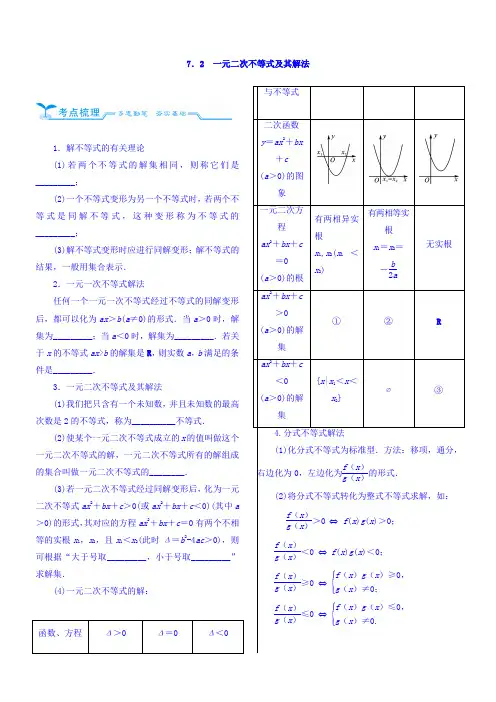 7．2　一元二次不等式及其解法
考点梳理
多思勤笔　夯实基础
1．解不等式的有关理论
(1)若两个不等式的解集相同，则称它们是
_________；
(2)一个不等式变形为另一个不等式时，若两个不
等式是同解不等式，这种变形称为不等式的
_________；
(3)解不等式变形时应进行同解变形；解不等式的
结果，一般用集合表示．
2．一元一次不等式解法
任何一个一元一次不等式经过不等式的同解变形
后，都可以化为ax＞b(a≠0)的形式．当a＞0时，解
集为_________；当a＜0时，解集为_________．若关
于x的不等式ax＞b的解集是R，则实数a，b满足的条
件是_________．
3．一元二次不等式及其解法
(1)我们把只含有一个未知数，并且未知数的最高
次数是2的不等式，称为__________不等式．
(2)使某个一元二次不等式成立的x的值叫做这个
一元二次不等式的解，一元二次不等式所有的解组成
的集合叫做一元二次不等式的________．
(3)若一元二次不等式经过同解变形后，化为一元
二次不等式ax²＋bx＋c＞0(或ax²＋bx＋c＜0)(其中a
＞0)的形式，其对应的方程ax²＋bx＋c＝0有两个不相
等的实根x₁，x₂，且x₁＜x₂(此时Δ＝b²－4ac＞0)，则
可根据“大于号取_________，小于号取_________”
求解集．
(4)一元二次不等式的解：
函数、方程　Δ＞0　Δ＝0　Δ＜0
与不等式
二次函数
y＝ax²＋bx
＋c
(a＞0)的图
象
y x₁ O x₂ x
y O x₁＝x₂ x
y O x
一元二次方
程
ax²＋bx＋c
＝0
(a＞0)的根
有两相异实
根
x₁，x₂(x₁＜
x₂)
有两相等实
根
x₁＝x₂＝
－b/2a
无实根
ax²＋bx＋c
＞0
(a＞0)的解
集
①
②
R
ax²＋bx＋c
＜0
(a＞0)的解
集
{x|x₁＜x＜
x₂}
∅
③
4.分式不等式解法
(1)化分式不等式为标准型．方法：移项，通分，
右边化为0，左边化为f（x）/g（x）的形式．
(2)将分式不等式转化为整式不等式求解，如：
f（x）/g（x）＞0 ⇔ f(x)g(x)＞0；
f（x）/g（x）＜0 ⇔ f(x)g(x)＜0；
f（x）/g（x）≥0 ⇔ {f（x）g（x）≥0，
g（x）≠0；
f（x）/g（x）≤0 ⇔ {f（x）g（x）≤0，
g（x）≠0.